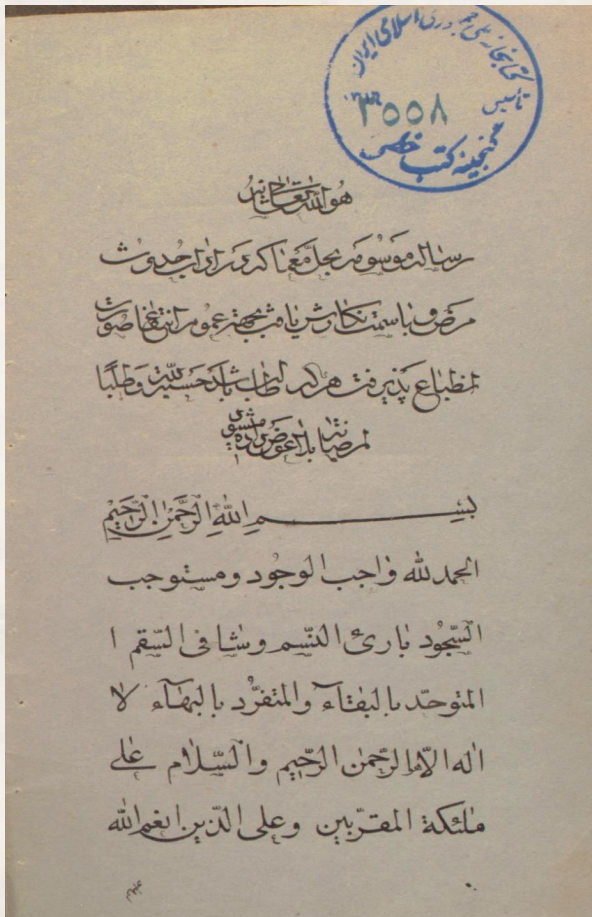 کتابخانه ملی جمهوری اسلامی ایران
تأسیس
۳۵۵۸
گنجینه کتب خطی
هو الله تعالی شأنه
رساله موسومه بحل معما که در ابواب حدوث
مرض وبا سمت نگارش یافته بجهة عموم انتفاع صورت
انطباع پذیرفت هر که طالب باشد حسبة لله وطلبا
لمرضاته بلا عوض داده میشود
بِسْمِ اللهِ الرَّحْمٰنِ الرَّحِيْمِ
الحمد لله واجب الوجود ومستوجب
السّجُود بارئ النّسم وشافی السّقم ا
المتوحّد بالبقآء والمتفرّد بالبهآء لا
اله الّا هو الرّحمن الرّحیم والسّلام علی
ملئکة المقرّبین وعلی الّذین انعم الله
علیهم